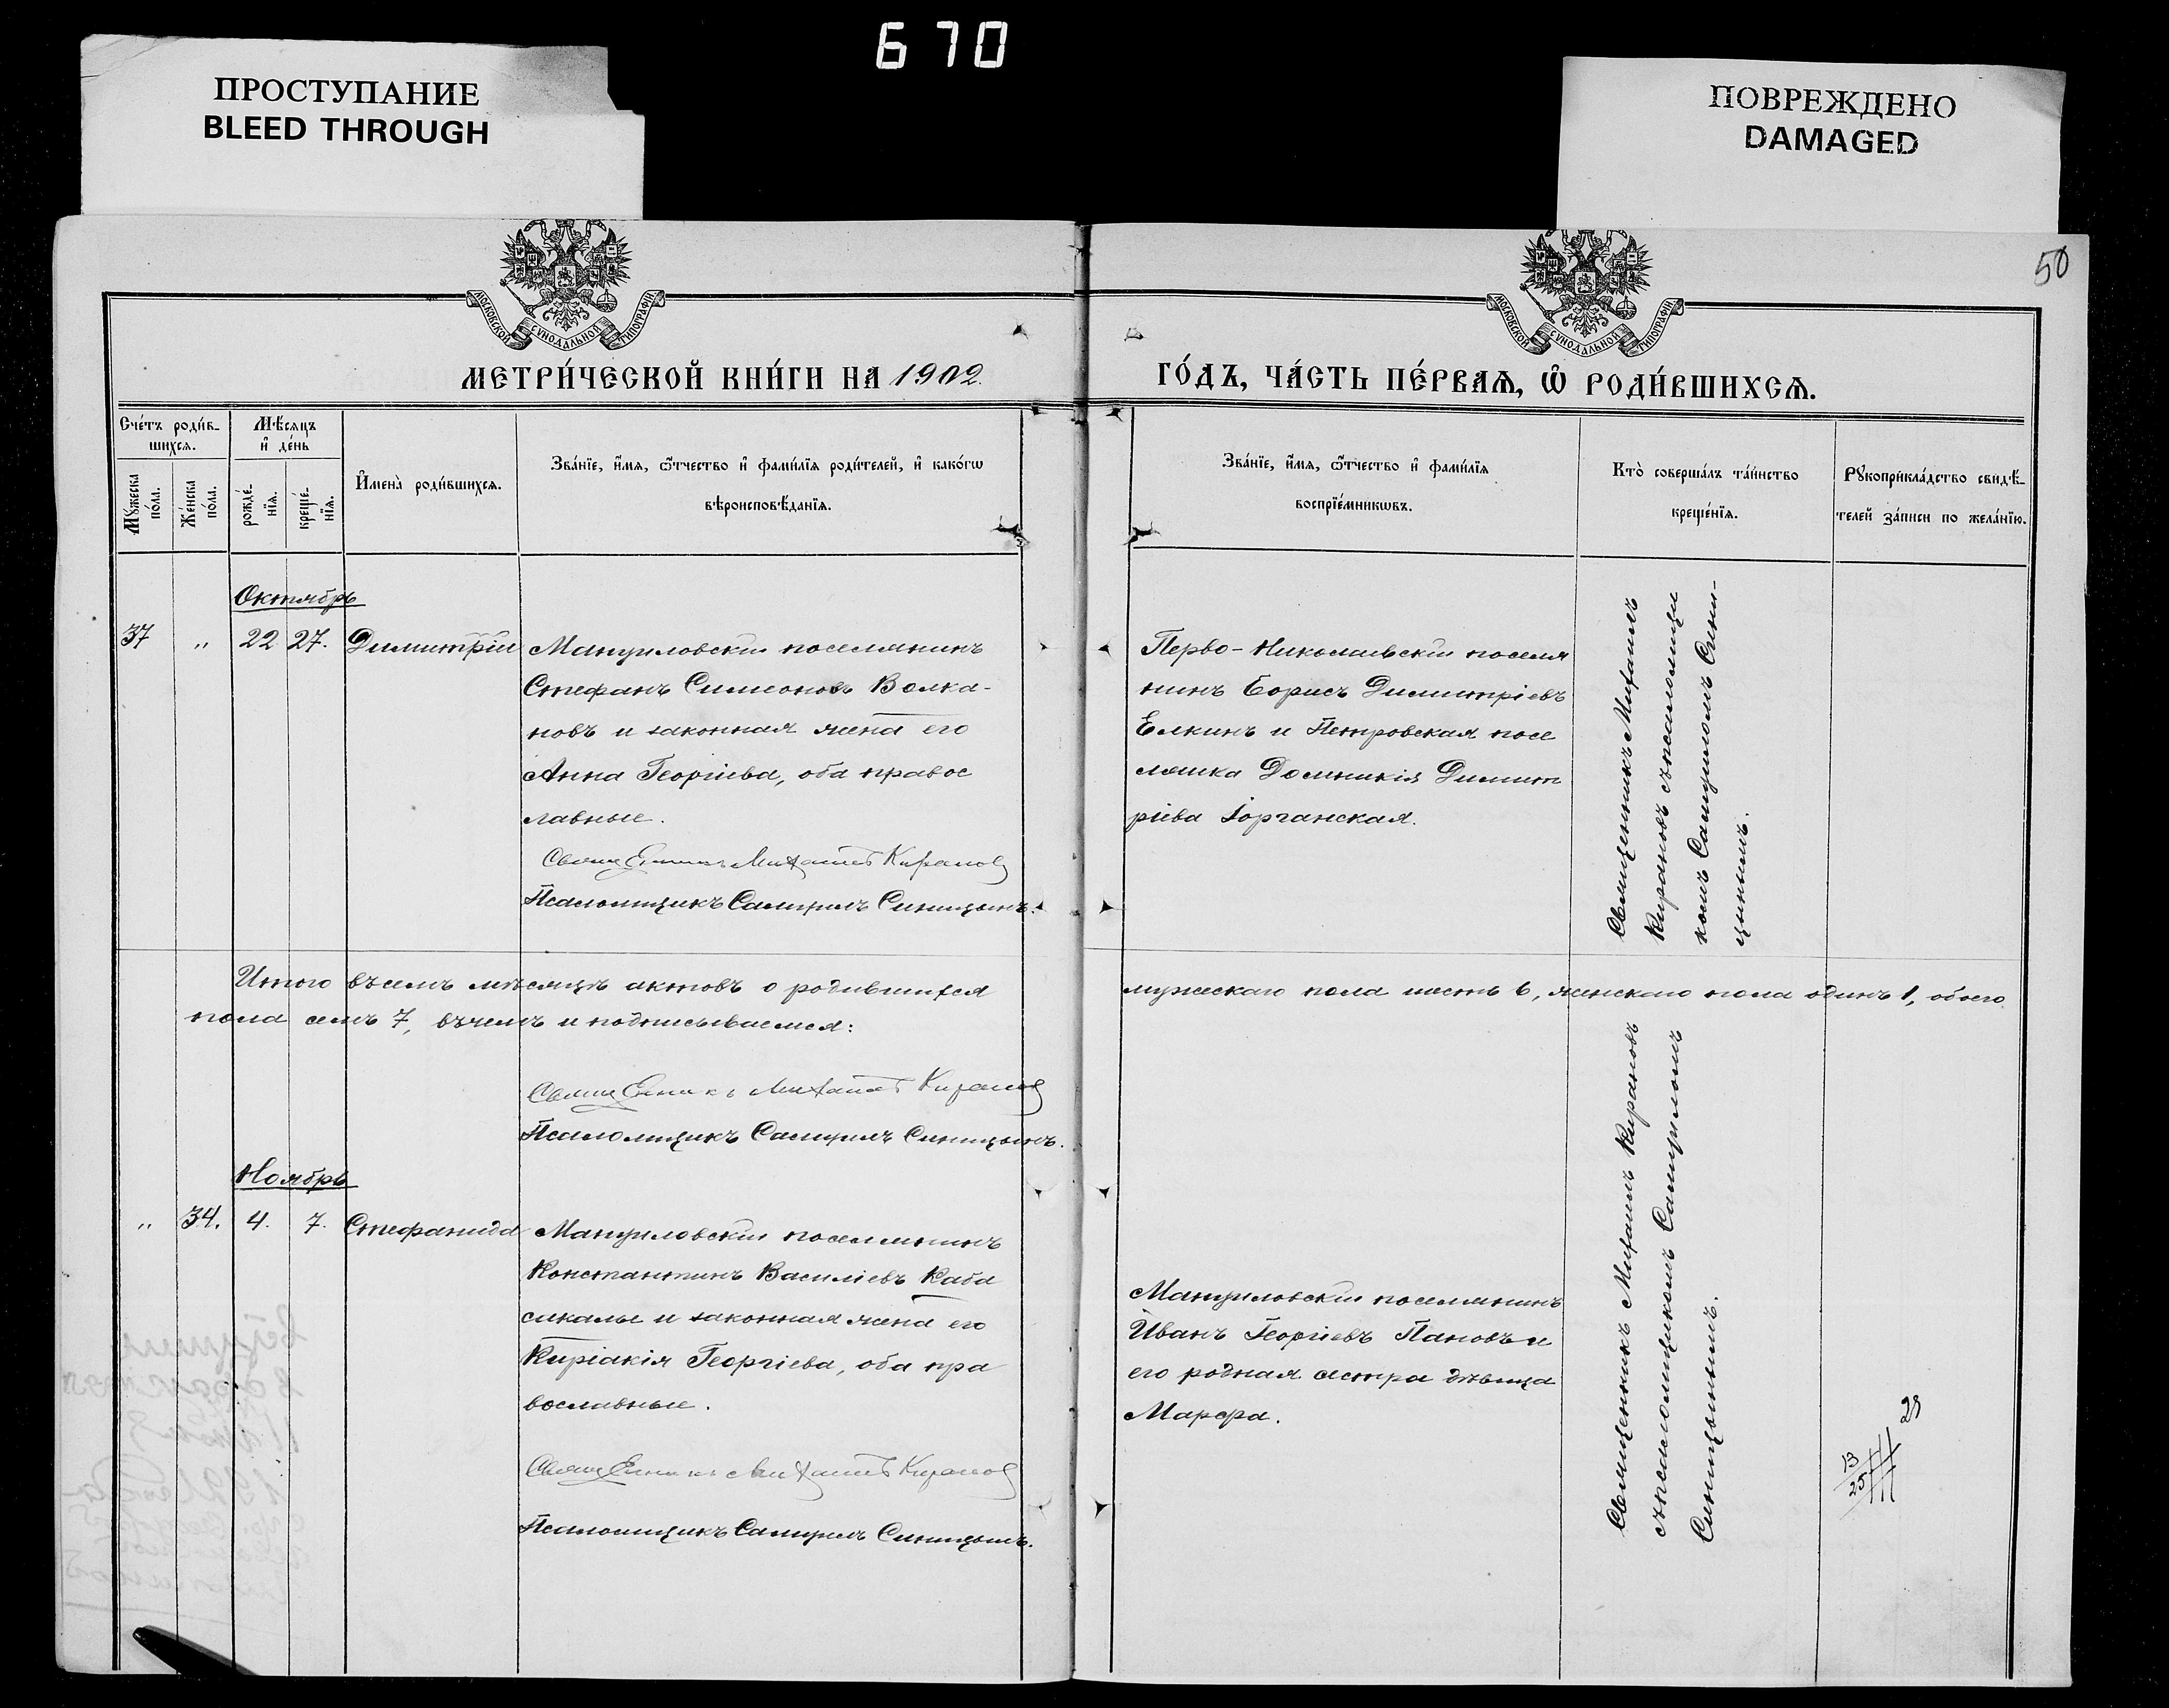 670
ПРОСТУПАНИЕ
BLEED THROUGH
ПОВРЕЖДЕНО
DAMAGED
50
МОСКОВСКОЙ СѴНОДАЛЬНОЙ ТИПОГРАФІИ
МОСКОВСКОЙ СѴНОДАЛЬНОЙ ТИПОГРАФІИ
МЕТРИ́ЧЕСКОЙ КНИ́ГИ НА 1902.
ГО́ДЪ, ЧА́СТЬ ПЕ́РВАѦ, Ѡ҆ РОДИ́ВШИХСѦ.
Сче́тъ роди́в-
шихсѧ.
Мѣ́сѧцъ
и҆ де́нь
Мꙋ́жеска
по́ла.
Же́нска
по́ла.
рожде́-
нїѧ.
креще́-
нїѧ.
И҆мена̀ роди́вшихсѧ.
Зва́нїе, и҆́мѧ, ѻ҆́тчество и҆ фами́лїѧ роди́телей, и҆ како́гѡ
вѣроисповѣ́данїѧ.
Зва́нїе, и҆́мѧ, ѻ҆́тчество и҆ фами́лїѧ
воспрїе́мникѡвъ.
Кто̀ соверша́лъ та́инство
креще́нїѧ.
Рꙋкоприкла́дство свидѣ́-
телей за́писи по жела́нїю.
Октябрь
37 " 22 27. Димитрій
Мануиловскій поселянинъ
Стефанъ Симеоновъ Волка-
новъ и законная жена его
Анна Георгіева, оба правос
лавные.
Священникъ Михаилъ Кирановъ
Псаломщикъ Самуилъ Синицынъ.
Перво-Николаевскій поселя
нинъ Борисъ Димитріевъ
Елкинъ и Петровская посе
лянка Домникія Димит
ріева Іорганская.
Священникъ Михаилъ
Кирановъ съ псаломщи
комъ Самуиломъ Сини-
цынымъ.
Итого въ семъ мѣсяцѣ актовъ о родившихся мужескаго пола шесть 6, женскаго пола одинъ 1, обоего
пола семь 7, въ чемъ и подписываемся:
Священникъ Михаилъ Кирановъ
Псаломщикъ Самуилъ Синицынъ.
Ноябрь
" 34. 4. 7. Стефанида
Мануиловскій поселянинъ
Константинъ Василіевъ Каба
сикалы и законная жена его
Киріакія Георгіева, оба пра
вославные.
Священникъ Михаилъ Кирановъ
Псаломщикъ Самуилъ Синицынъ.
Мануиловскій поселянинъ
Иванъ Георгіевъ Пановъ и
его родная сестра дѣвица
Марфа.
Священникъ Михаилъ Кирановъ
съ псаломщикомъ Самуиломъ
Синицынымъ.
13
25